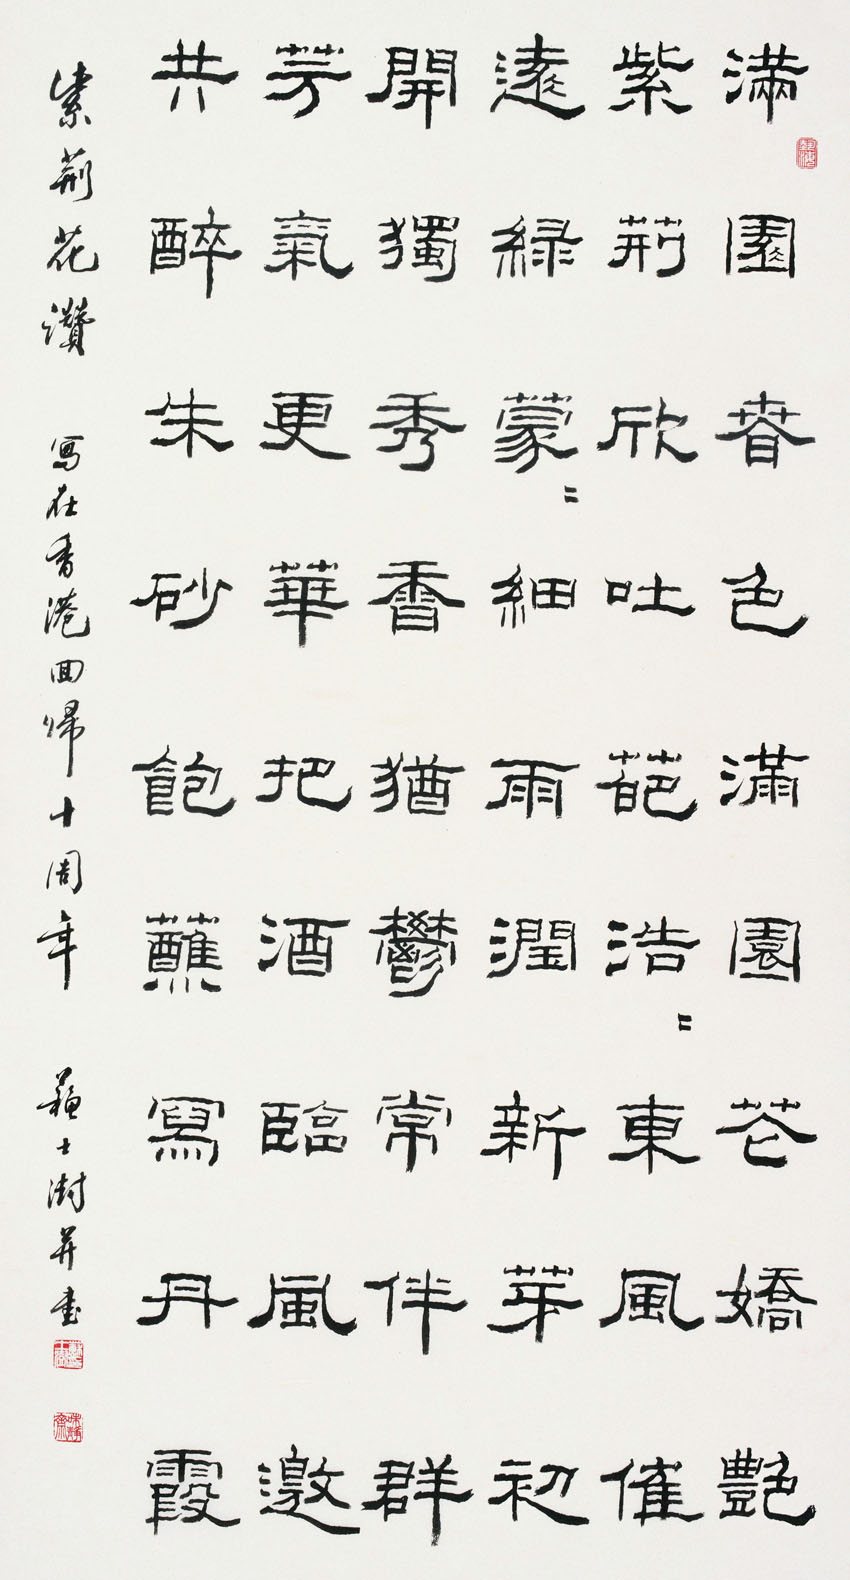 滿園春色滿園花嬌艷
紫荊欣吐葩浩〻東風催
遠緑蒙〻細雨潤新芽初
開獨秀香猶鬱常伴群
芳氣更華把酒臨風邀
共醉朱砂飽蘸寫丹霞
紫荊花讚 寫在香港回歸十周年 蘇士澍并書